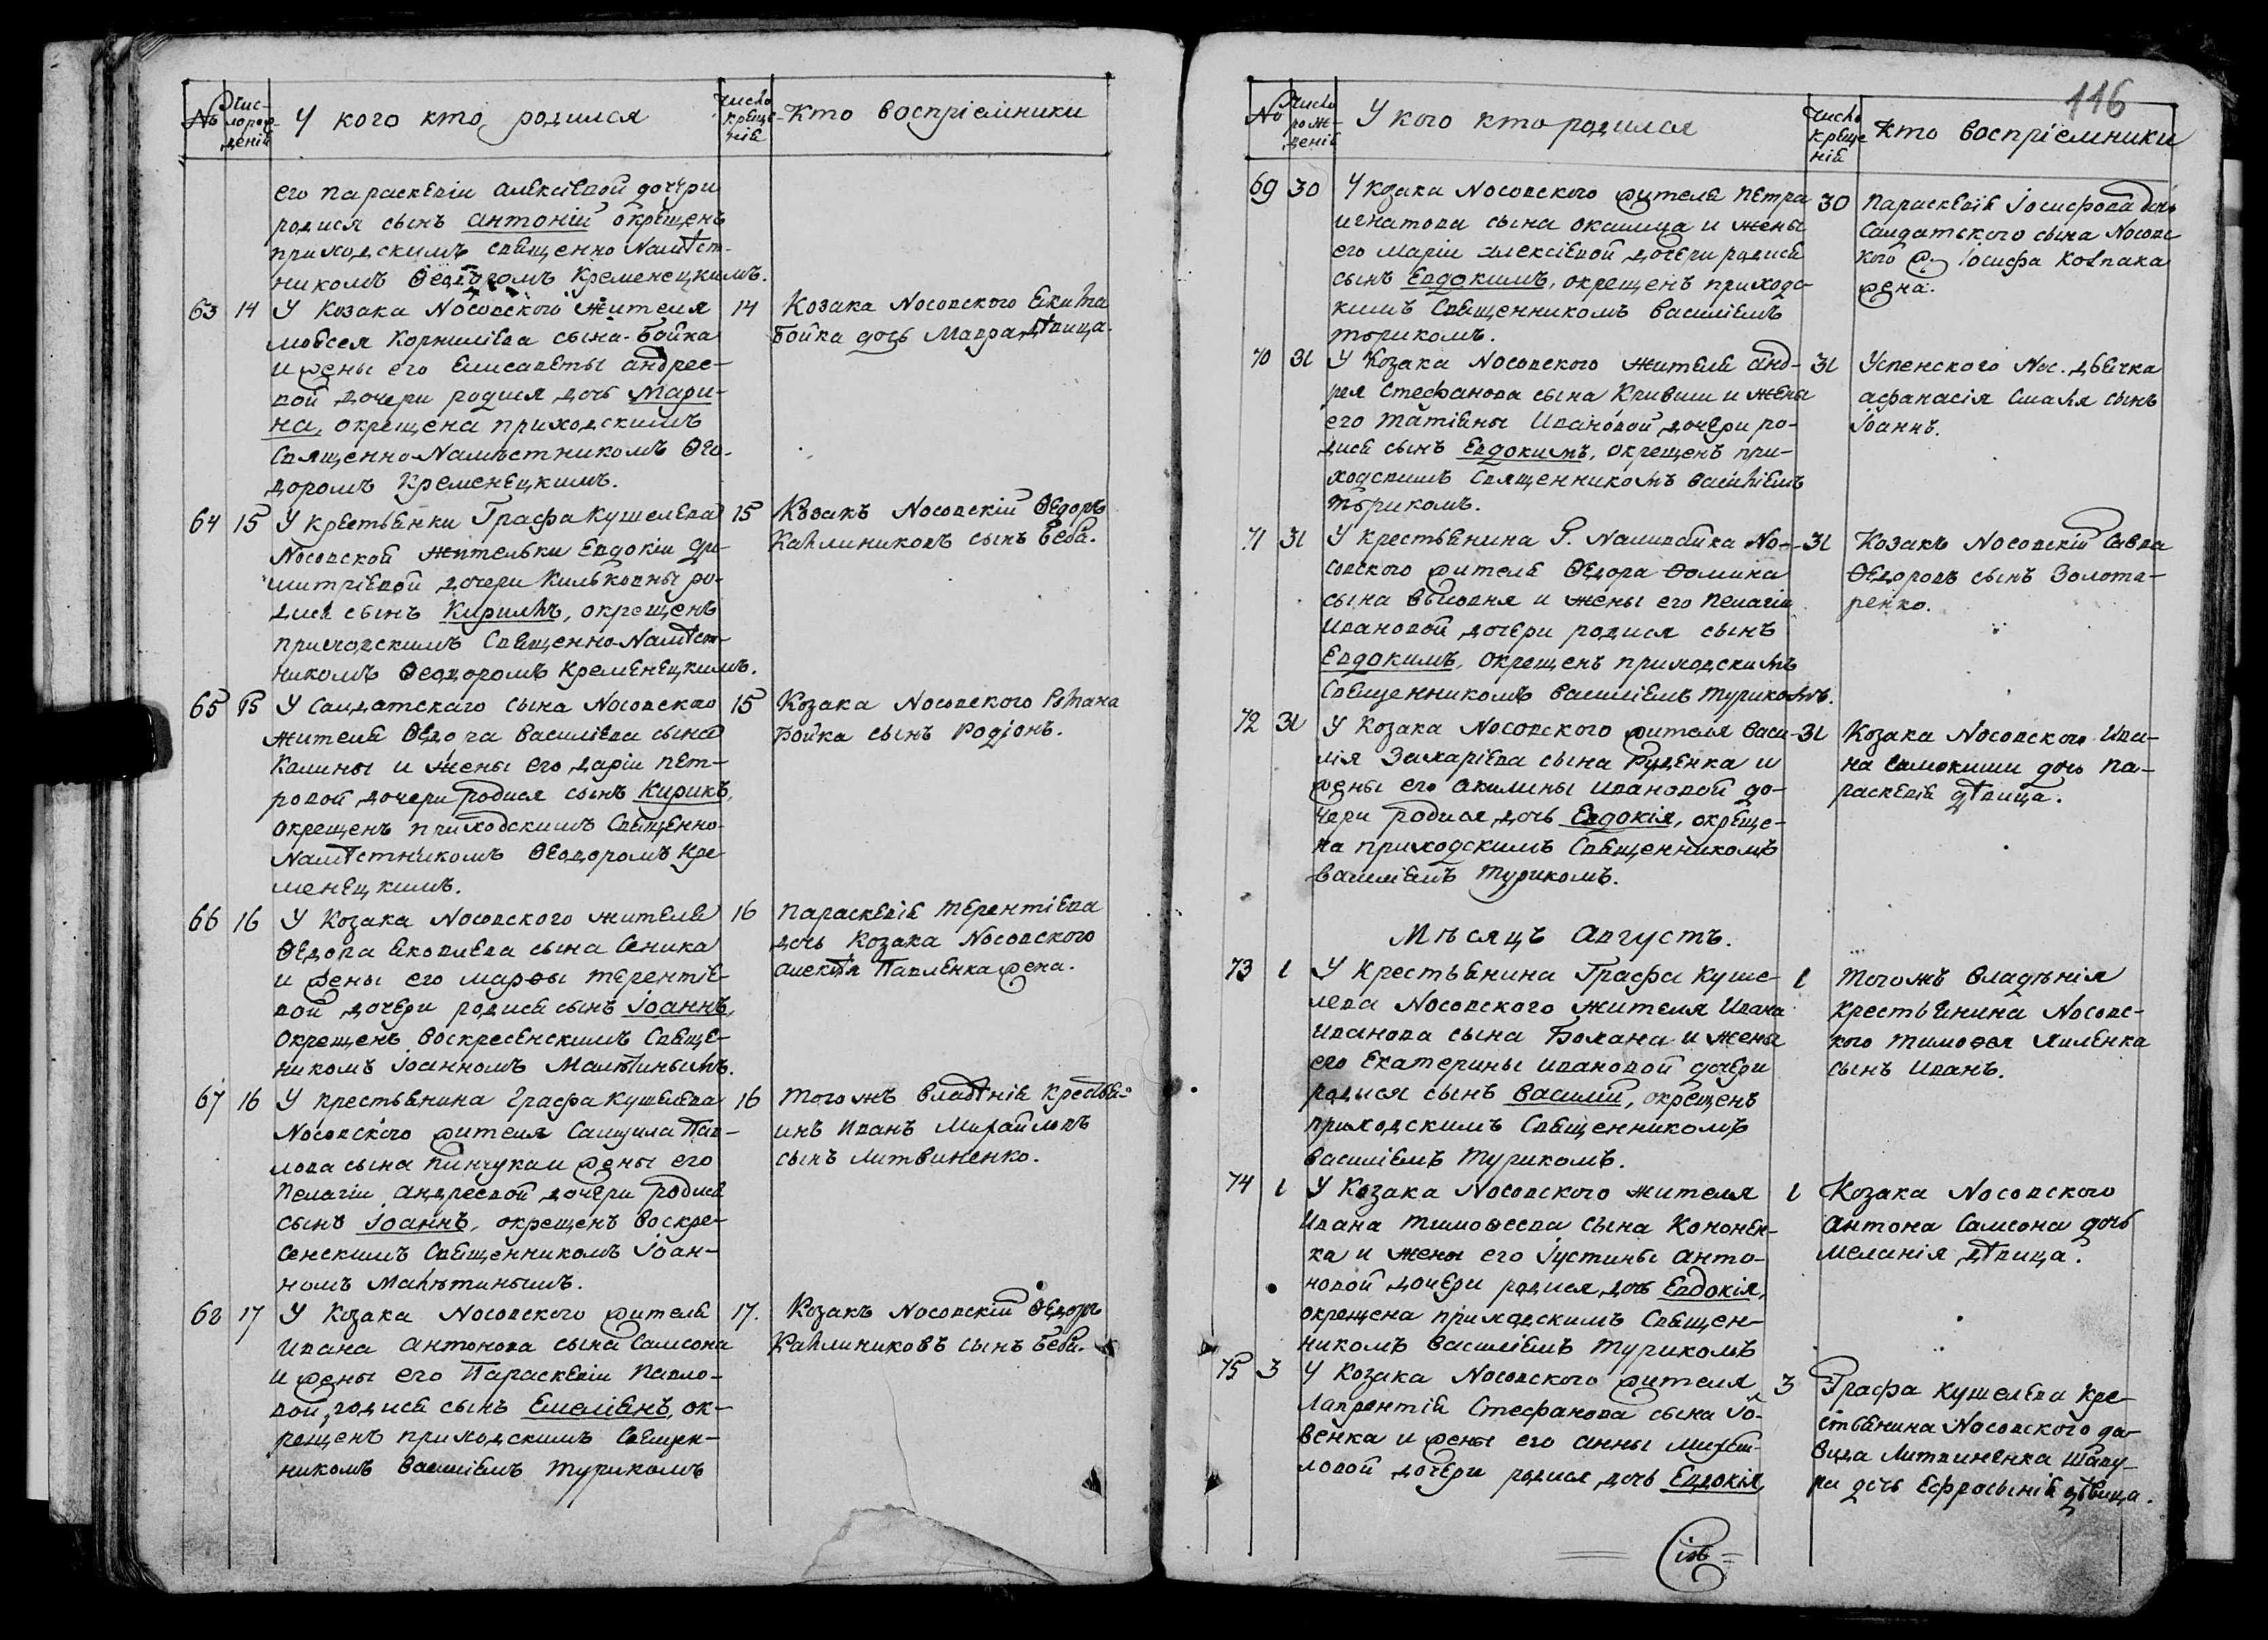 №
Чис-
ло рож-
деній
У кого кто родился
Число
креще-
нія
Кто воспріемники
его Параскевіи Алексіевой дочери
родися сынъ Антоній окрещенъ
приходскимъ Священно Намѣст-
никомъ Ѳеодоромъ Кременецкимъ.
63 14 У Козака Носовского жителя
Моѵсея Корниліева сына Бойка
и жены его Елисаветы Андрее-
вой дочери родися дочь Мари-
на, окрещена приходскимъ
Священно-Намѣстникомъ Ѳео-
доромъ Кременецкимъ.
14 Козака Носовского Екима
Бойка дочь Мавра дѣвица.
64 15 У крестьянки Графа Кушелева
Носовской жительки Евдокіи Ди-
митріевой дочери Кильковны ро-
дися сынъ Кириллъ, окрещенъ
приходскимъ Священно-Намѣст-
никомъ Ѳеодоромъ Кременецкимъ.
15 Козакъ Носовскій Ѳедоръ
Каллиниковъ сынъ Беба.
65 15 У Салдатскаго сына Носовского
жителя Ѳедора Василіева сына
Калины и жены его Даріи Пет-
ровой дочери родися сынъ Кирикъ,
окрещенъ приходскимъ Священно-
Намѣстникомъ Ѳеодоромъ Кре-
менецкимъ.
15 Козака Носовского Романа
Бойка сынъ Родіонъ.
66 16 У Козака Носовского жителя
Ѳедора Яковлева сына Сеника
и жены его Марѳы Терентіе-
вой дочери родися сынъ Іоаннъ,
окрещенъ Воскресенскимъ Свяще-
никомъ Іоанномъ Малютинымъ.
16 Параскевія Терентіева
дочь Козака Носовского
Алексѣя Павленка жена.
67 16 У крестьянина Графа Кушелева
Носовского жителя Самуила Пав-
лова сына Пинчука и жены его
Пелагіи Андреевой дочери родися
сынъ Іоаннъ, окрещенъ Воскре-
сенскимъ Священникомъ Іоан-
номъ Малютинымъ.
16 Того жъ владѣнія крестья-
инъ Иванъ Михайловъ
сынъ Литвиненко.
68 17 У Козака Носовского жителя
Ивана Антонова сына Самсона
и жены его Параскевіи Павло-
вой, родися сынъ Емеліянъ, ок-
рещенъ приходскимъ Священ-
никомъ Василіемъ Турикомъ
17. Козакъ Носовскій Ѳедоръ
Каллиниковъ сынъ Беба.
116
№
Число
рож-
деній
У кого кто родился
Число
креще
нія
Кто воспріемники
69 30 У Козака Носовского жителя Петра
Игнатова сына и жены
его Маріи Алексіевой дочери родися
сынъ Евдокимъ, окрещенъ приходс-
кимъ Священникомъ Василіемъ
Турикомъ.
30 Параскевія Іосифова дочь
Салдатского сына Носовс
кого ж. Іосифа Колпака
жена.
70 31 У Козака Носовского жителя Анд-
рея Стефанова сына Кривши и жены
его Татіяны Ивановой дочери ро-
дися сынъ Евдокимъ, окрещенъ при-
ходскимъ Священникомъ Василіемъ
Турикомъ.
31 Успенского Нос. дьячка
Афанасія Смаля сынъ
Іоаннъ.
71 31 У крестьянина Г. Наливайка Но-
совского жителя Ѳедора Ѳомина
сына и жены его Пелагіи
Ивановой дочери родися сынъ
Евдокимъ, окрещенъ приходскимъ
Священникомъ Василіемъ Турикомъ.
31 Козакъ Носовскій Савва
Ѳедоровъ сынъ Золота-
ренко.
72 31 У Козака Носовского жителя Васи-
лія Захаріева сына Руденка и
жены его Акилины Ивановой до-
чери родися дочь Евдокія, окреще-
на приходскимъ Священникомъ
Василіемъ Турикомъ.
31 Козака Носовского Ива-
на Самокиши дочь Па-
раскевія дѣвица.
Мѣсяцъ Августъ.
73 1 У крестьянина Графа Куше-
лева Носовского жителя Ивана
Иванова сына Бохана и жены
его Екатерины Ивановой дочери
родися сынъ Василій, окрещенъ
приходскимъ Священникомъ
Василіемъ Турикомъ.
1 Того жъ владѣнія
крестьянина Носовс-
кого Тимоѳея Яиленка
сынъ Иванъ.
74 1 У Козака Носовского жителя
Ивана Тимоѳеева сына Кононен-
ка и жены его Іустины Анто-
новой дочери родися дочь Евдокія,
окрещена приходскимъ Священ-
никомъ Василіемъ Турикомъ
1 Козака Носовского
Антона Самсона дочь
Меланія дѣвица.
75 3 У Козака Носовского жителя
Лаврентія Стефанова сына Іо-
венка и жены его Анны Михай-
ловой дочери родися дочь Евдокія,
3 Графа Кушелева кре-
стьянина Носовского Да-
вида Литвиненка Шапу-
ри дочь Ефросинія дѣвица.